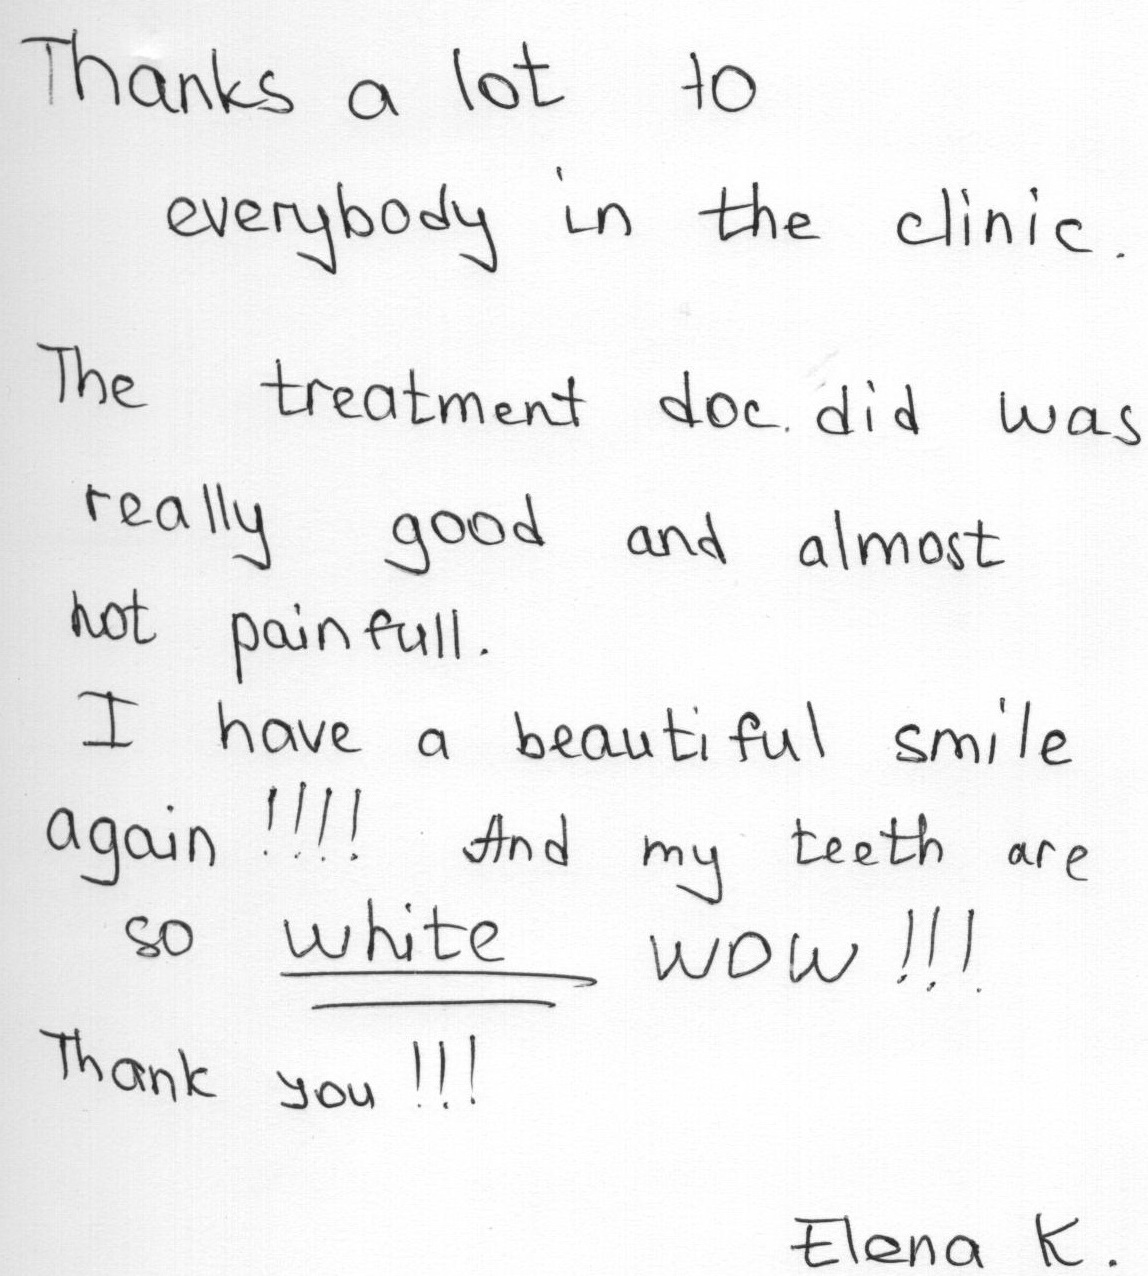 Thanks a lot to
everybody in the clinic.
The treatment doc. did was
really good and almost
not painfull.
I have a beautiful smile
again !!!! And my teeth are
so white WOW !!!
Thank you !!!
Elena K.